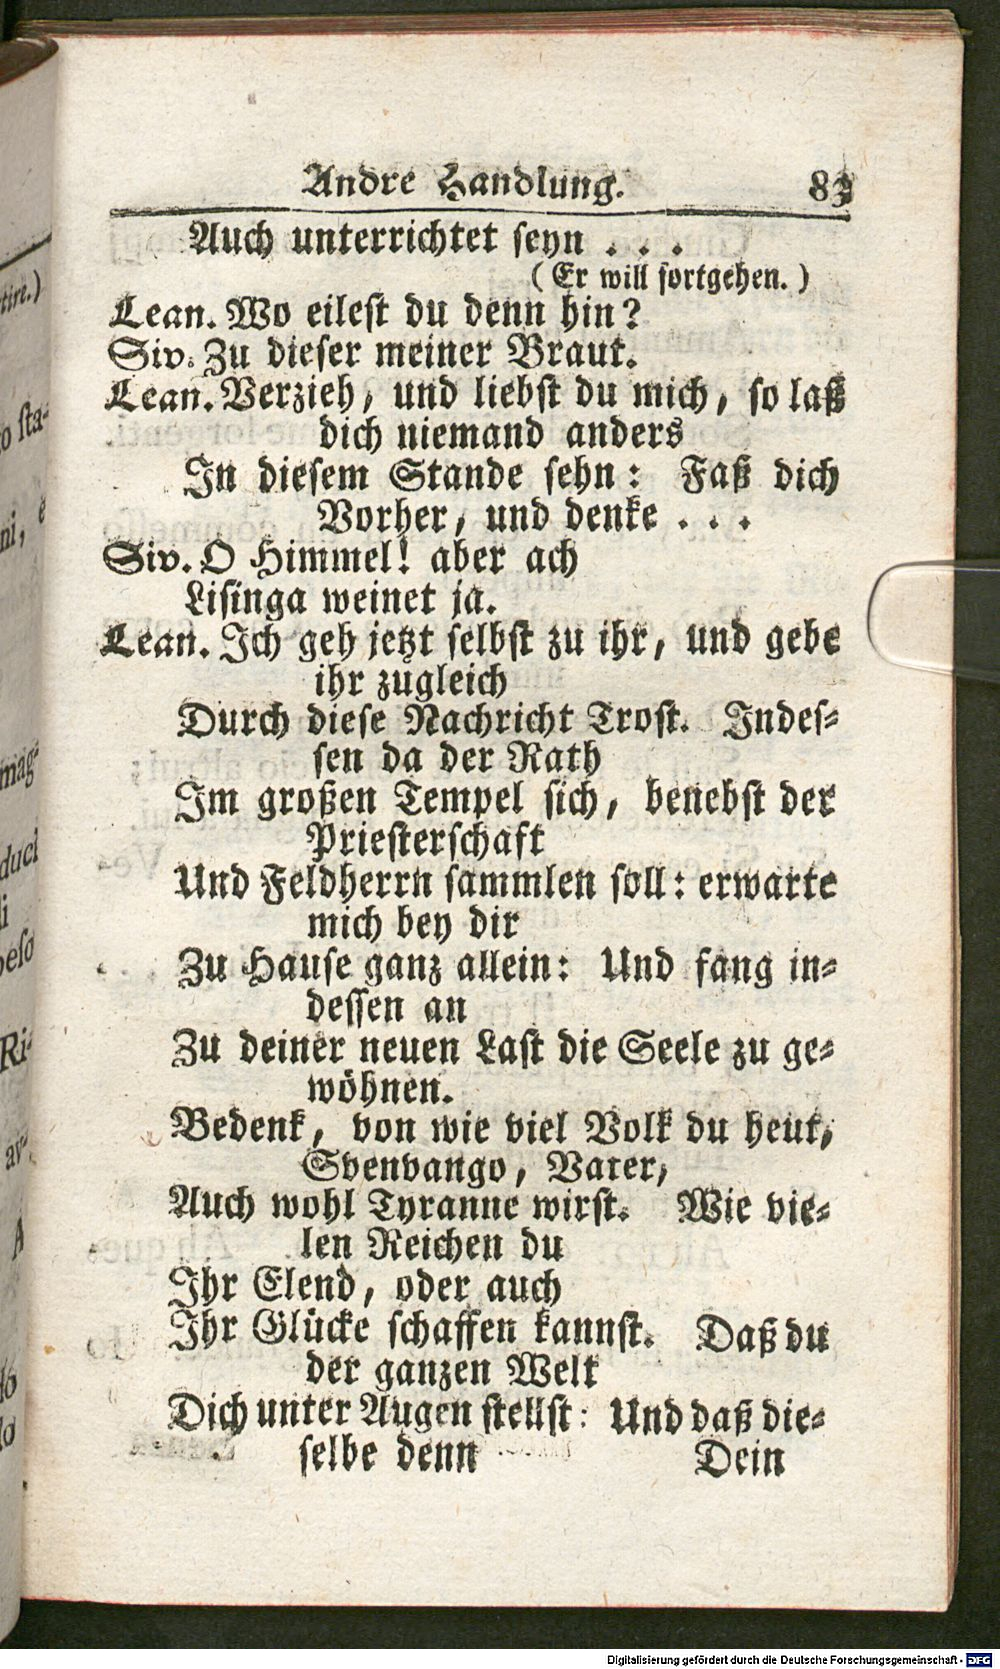 Andre Handlung. 83
Auch unterrichtet seyn . . .
(Er will fortgehen.)
Lean. Wo eilest du denn hin?
Siv. Zu dieser meiner Braut.
Lean. Verzieh, und liebst du mich, so laß
dich niemand anders
In diesem Stande sehn: Faß dich
Vorher, und denke . . .
Siv. O Himmel! aber ach
Lisinga weinet ja.
Lean. Ich geh jetzt selbst zu ihr, und gebe
ihr zugleich
Durch diese Nachricht Trost. Indes-
sen da der Rath
Im großen Tempel sich, benebst der
Priesterschaft
Und Feldherrn sammlen soll: erwarte
mich bey dir
Zu Hause ganz allein: Und fang in-
dessen an
Zu deiner neuen Last die Seele zu ge-
wöhnen.
Bedenk, von wie viel Volk du heut,
Svenvango, Vater,
Auch wohl Tyranne wirst. Wie vie-
len Reichen du
Ihr Elend, oder auch
Ihr Glücke schaffen kannst. Daß du
der ganzen Welt
Dich unter Augen stellst: Und daß die-
selbe denn
Dein
Digitalisierung gefördert durch die Deutsche Forschungsgemeinschaft - DFG